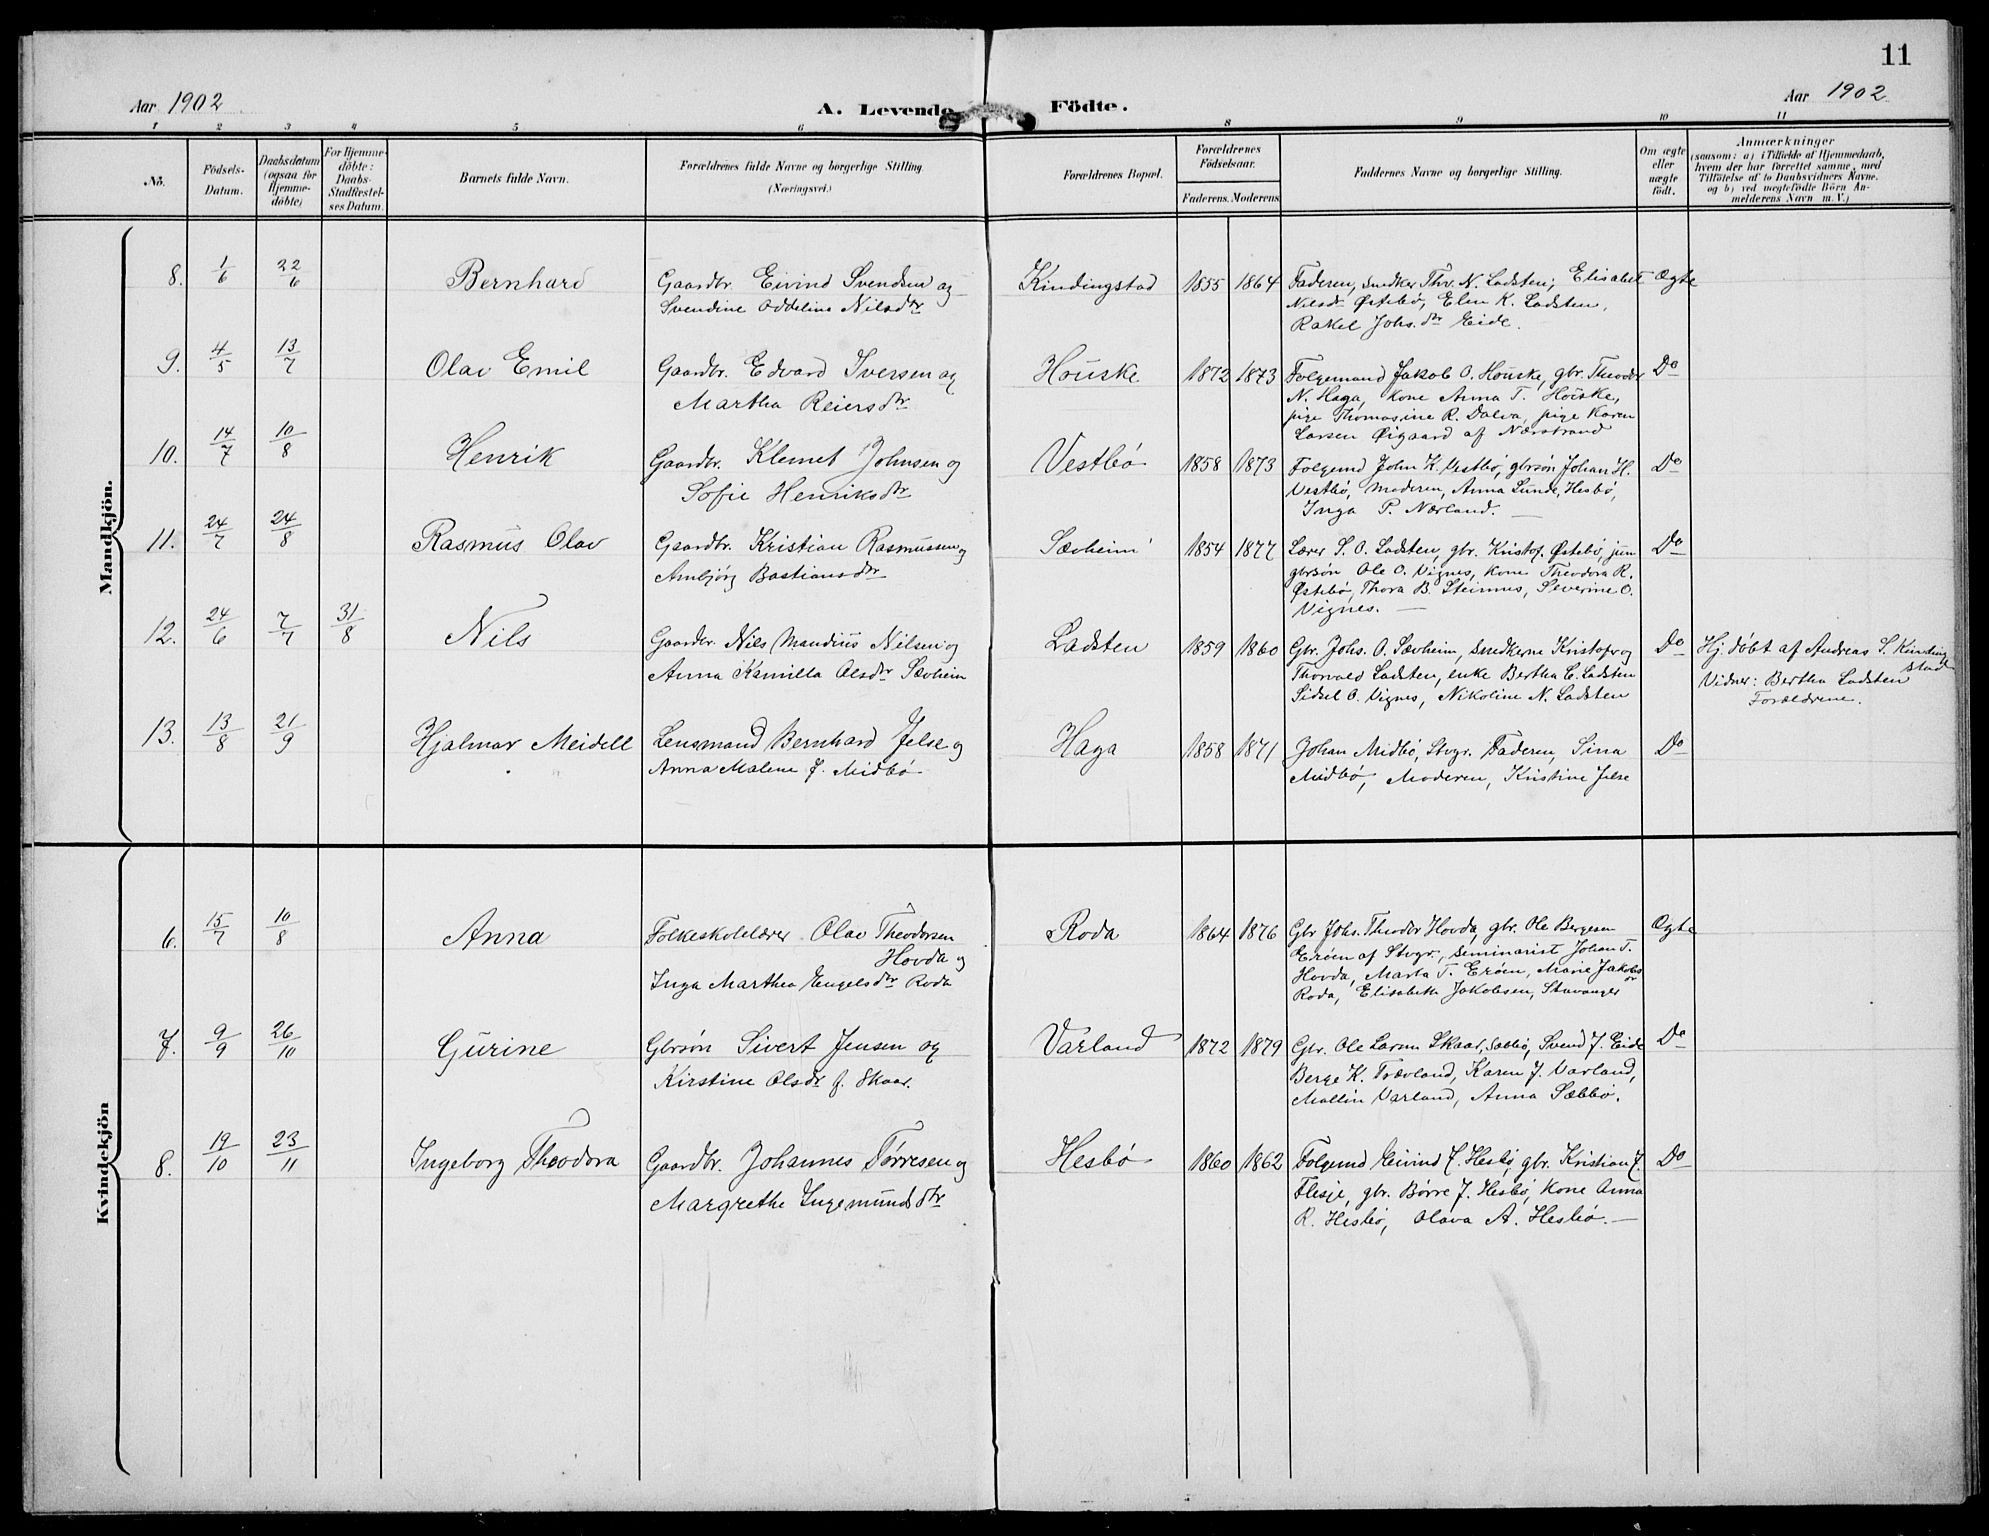 11
Aar 1902 A. Levende Födte. Aar 1902
1 2 3 4 5 6 8 9 10 11
No. Födsels-Datum. Daabsdatum (ogsaa for Hjemme-döbte) For Hjemme-döbte: Daabs-Stadfæstel-ses Datum. Barnets fulde Navn. Forældrenes fulde Navne og borgerlige Stilling (Næringsvei.) Forældrenes Bopæl. Forældrenes Födselsaar. Faderens. Moderens. Faddernes Navne og borgerlige Stilling. Om ægte eller uægte födt. Anmærkninger (saasom: a) i Tilfælde af Hjemmedaab, hvem der har forrettet samme, med Tilföielse af to Daabsvidners Navne. og b) ved uegtefödte Börn An-melderens Navn m. V.)
Mandkjön.
8. 1/6 22/6 Bernhard Gaardbr. Eivind Svendsen og Kindingstad 1855 1864 Faderen, snedker Thv. N. Ladsten, Elisabet Ægte
Svendine Oddeline Nilsdtr Nilsdr Østebø, Elen K. Ladsten,
Rakel Johs.dtr Eide.
9. 4/5 13/7 Olav Emil Gaardbr. Edvard Iversen og Houske 1872 1873 Folgemand Jakob O. Houske, gbr. Theodor Do
Martha Reiersdtr N. Haga, kone Anna T. Houske,
pige Thomasine R. Dalva, pige Karen
Larsen Øigaard af Nærstrand
10. 14/7 10/8 Henrik Gaardbr. Klemet Johnsen og Vestbø 1858 1873 Folgemd John K. Vestbø, gbrsøn Johan H. Do
Sofie Henriksdtr Vestbø, Moderen, Anna Lunde, Hesbø,
Inga P. Nærland.
11. 24/7 24/8 Rasmus Olav Gaardbr. Kristian Rasmussen og Sævheim 1854 1877 Lærer S. O. Ladsten, gbr. Kristof. Østebø, jun Do
Anbjørg Bastiansdtr gbrsøn Ole O. Vignes, kone Theodora R.
Østebø, Thora B. Steinnes, Severine O.
Vignes.
12. 24/6 7/7 31/8 Nils Gaardbr. Nils Mandius Nilsen og Ladsten 1859 1860 Gbr. Johs. O. Sævheim, snedkerne Kristofer og Do Hj. døbt af Andreas S. Kinding
stad
Anna Kamilla Olsdtr Sævheim Thorvald Ladsten, enke Bertha C. Ladsten Vidner: Bertha Ladsten
Sidsel O. Vignes, Nikoline N. Ladsten Forældrene.
13. 13/8 21/9 Hjalmar Meidell Lensmand Bernhard Jelse og Haga 1858 1871 Johan Midbø, Stvgr. Faderen, Sina Do
Anna Malene f. Midbø Midbø, Moderen, Kristine Jelse
Kvindekjön
6. 15/7 10/8 Anna Folkeskolelærer Olav Theodorsen Roda 1864 1876 Gbr Johs. Theodor Hovda, gbr. Ole Bergesen Ægte
Hovda og Erøen af Stvgr., seminarist Johan T.
Inga Marthea Engelsdtr Roda Hovda, Marta T. Erøen, Marie Jakobsdr
Roda, Elisabeth Jakobsen, Stavanger
7. 9/9 26/10 Gurine Gbrsön Sivert Jensen og Varland 1872 1879 Gbr. Ole Larsen Skaar, Sæbbø, Svend J. Eide Do
Kirstine Olsdr f. Skaar. Berge K. Trævland, Karen J. Varland,
Mallin Varland, Anna Sæbbø.
8. 19/10 23/11 Ingeborg Theodora Gaardbr. Johannes Tørresen og Hesbø 1860 1862 Folgemd Eivind J. Hesbø, gbr. Kristian J. Do
Margrethe Ingemundsdtr Flesje, gbr. Børre J. Hesbø, Kone Anna
R. Hesbø, Olava A. Hesbø.